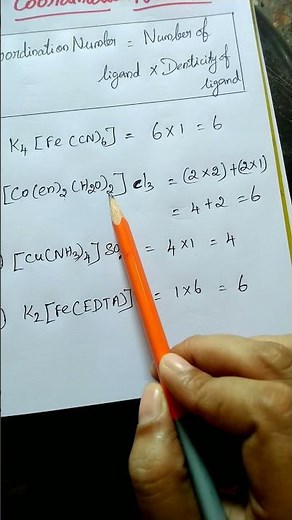 Coordination Number = Number of
ligand × Denticity of
ligand
K₄ [Fe (CN)₆] = 6 × 1 = 6
[Co(en)₂ (H₂O)₂] Cl₃ = (2 × 2) + (2 × 1)
= 4 + 2 = 6
) [Cu(NH₃)₄] SO₄ = 4 × 1 = 4
) K₂ [Fe(EDTA)] = 1 × 6 = 6